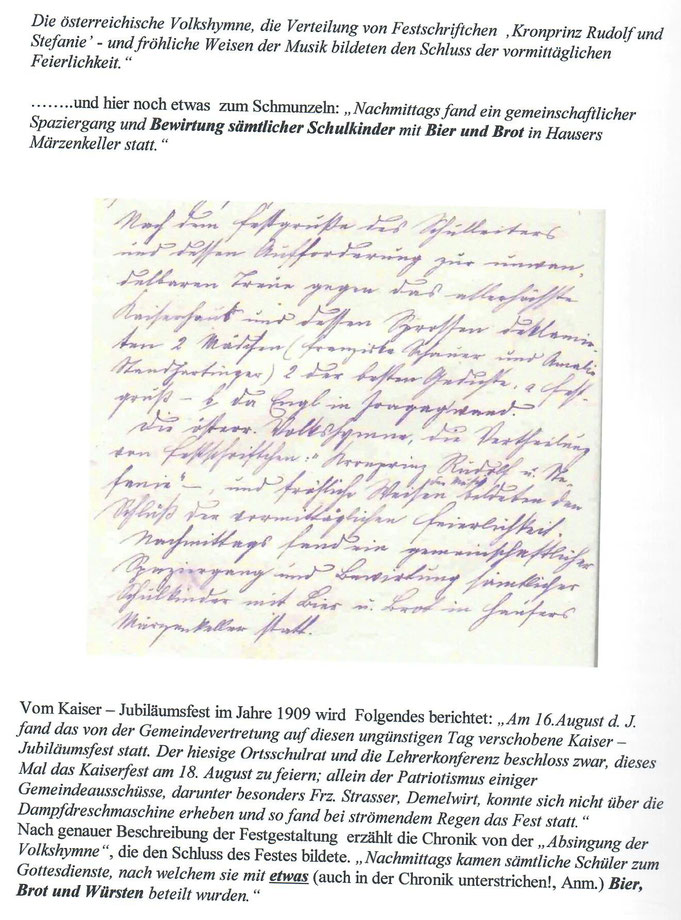 Die österreichische Volkshymne, die Verteilung von Festschriftchen ‚Kronprinz Rudolf und
Stefanie’ - und fröhliche Weisen der Musik bildeten den Schluss der vormittäglichen
Feierlichkeit.“
……..und hier noch etwas zum Schmunzeln: „Nachmittags fand ein gemeinschaftlicher
Spaziergang und Bewirtung sämtlicher Schulkinder mit Bier und Brot in Hausers
Märzenkeller statt.“
Nach dem Festgruße des Schulleiters
und dessen Aufforderung zur unwan-
delbaren Treue gegen das allerhöchste
Kaiserhaus und dessen Sprossen deklamir-
ten 2 Mädchen (Franziska Schauer und Amalie
Standhartinger) 2 der besten Gedichte, a Fest-
gruß – da Engl in
Die österr. Volkshymne, die Vertheilung
von Festschriftchen: "Kronprinz Rudolf u. Ste-
fanie" –, und fröhliche Weisen der Musik bildeten den
Schluß der vormittäglichen Feierlichkeit.
Nachmittags fand ein gemeinschaftlicher
Spaziergang und Bewirtung sämtlicher
Schulkinder mit Bier u. Brot in Hausers
Märzenkeller statt.
Vom Kaiser – Jubiläumsfest im Jahre 1909 wird Folgendes berichtet: „Am 16.August d. J.
fand das von der Gemeindevertretung auf diesen ungünstigen Tag verschobene Kaiser –
Jubiläumsfest statt. Der hiesige Ortsschulrat und die Lehrerkonferenz beschloss zwar, dieses
Mal das Kaiserfest am 18. August zu feiern; allein der Patriotismus einiger
Gemeindeausschüsse, darunter besonders Frz. Strasser, Demelwirt, konnte sich nicht über die
Dampfdreschmaschine erheben und so fand bei strömendem Regen das Fest statt.“
Nach genauer Beschreibung der Festgestaltung erzählt die Chronik von der „Absingung der
Volkshymne“, die den Schluss des Festes bildete. „Nachmittags kamen sämtliche Schüler zum
Gottesdienste, nach welchem sie mit etwas (auch in der Chronik unterstrichen!, Anm.) Bier,
Brot und Würsten beteilt wurden.“